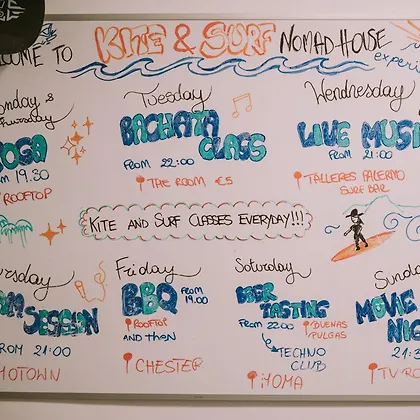 TO KITE & SURF NOMAD HOUSE
experi
&
Thursday
YOGA
19:30
ROOFTOP
Tuesday
BACHATA
CLASS
FROM 22:00
THE ROOM €5
Wendnesday
LIVE MUSI
FROM 21:00
TALLERES PALERMO
SURF BAR
KITE AND SURF CLASSES EVERYDAY!!!
SESSION
FROM 21:00
MOTOWN
Friday
BBQ FROM
19.00
ROOFTOP
AND THEN
CHESTER
Saturday
BEER
TASTING
FROM 22:00
BUENAS
PULGAS
TECHNO
CLUB
HOMA
Sunda
MOVIE
NIG
TV RO